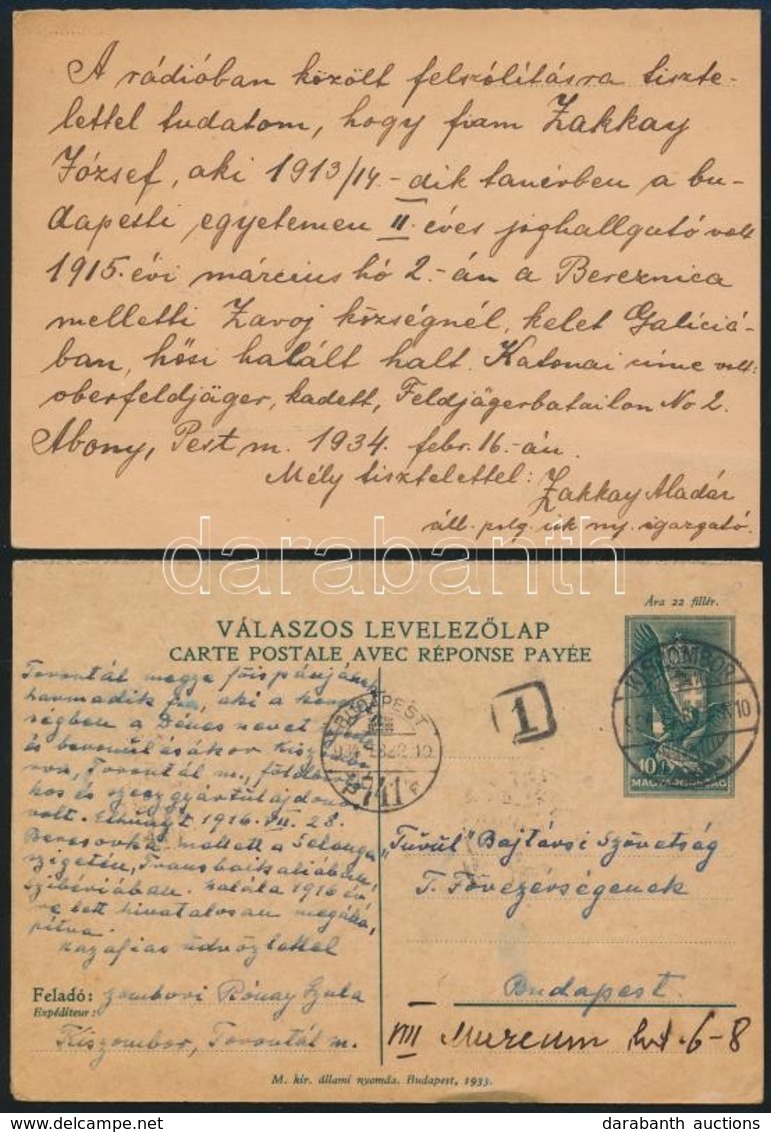 A rádióban közölt felszólításra tiszte-
lettel tudatom, hogy fiam Zakkay
József, aki 1913/14.-dik tanévben a bu-
dapesti egyetemen II. éves joghallgató volt
1915. évi március hó 2.-án a Bereznica
melletti Zavoj községnél, kelet Galiciá-
ban, hősi halált halt. Katonai címe volt:
oberfeldjäger, kadett, Feldjägerbatailon No 2.
Abony, Pest m. 1934. febr. 16.-án.
Mély tisztelettel: Zakkay Aladár
áll. polg. isk ny. igazgató.
darabanth
Ára 22 fillér.
VÁLASZOS LEVELEZŐLAP
CARTE POSTALE AVEC RÉPONSE PAYÉE
Torontál megye főispánjának
harmadik fia, aki a
ségben a Dénes nevet
és bevonulásakor Kiszombo-
ron, Torontál m., földbirto-
kos és szeszgyártulajdonos
volt. Elhunyt 1916. VII. 28.
Beresovka mellett a Selenga
szigetén, Transbaikaliában,
Szibériában. halála 1916 év
ve lett hivatalosan megálla-
pítva.
Hazafias üdvözlettel
BUDAPEST
741
1
KISZOMBOR
10
MAGYARORSZÁG
"Turul" Bajtársi Szövetség
T. Fővezérségének
Budapest.
VIII Muzeum krt. 6-8
Feladó: zombori Rónay Gyula
Expéditeur:
Kiszombor, Torontál m.
M. kir. állami nyomda. Budapest, 1933.
darabanth auctions